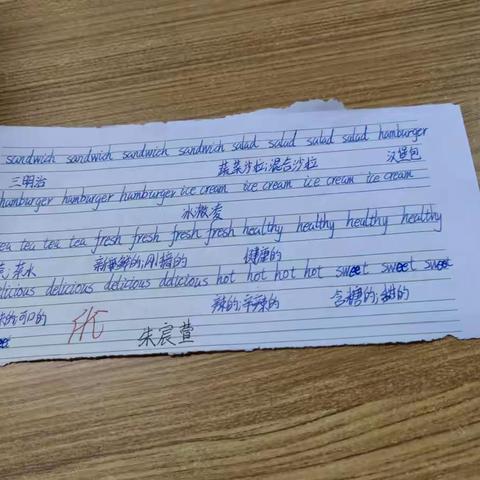 sandwich sandwich sandwich sandwich salad salad salad salad hamburger
三明治 蔬菜沙拉;混合沙拉 汉堡包
hamburger hamburger hamburger ice cream ice cream ice cream ice cream
冰激凌
tea tea tea tea fresh fresh fresh fresh healthy healthy healthy healthy
茶水 新鲜的;刚摘的 健康的
delicious delicious delicious delicious hot hot hot hot sweet sweet sweet
可口的 辣的;辛辣的 含糖的;甜的
朱宸萱